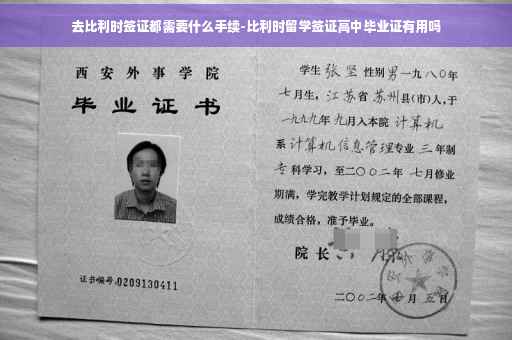 去比利时签证都需要什么手续-比利时留学签证高中毕业证有用吗
西安外事学院
毕业证书
证书编号:0209130411
学生 张坚 性别男 一九八〇年
七月生，江苏省苏州县(市)人,于
一九九九年九月入本院 计算机
系 计算机信息管理专业 三 年制
专科学习，至二〇〇二年 七月修业
期满，学完教学计划规定的全部课程，
成绩合格，准予毕业。
院长
二〇〇二年 月 五日